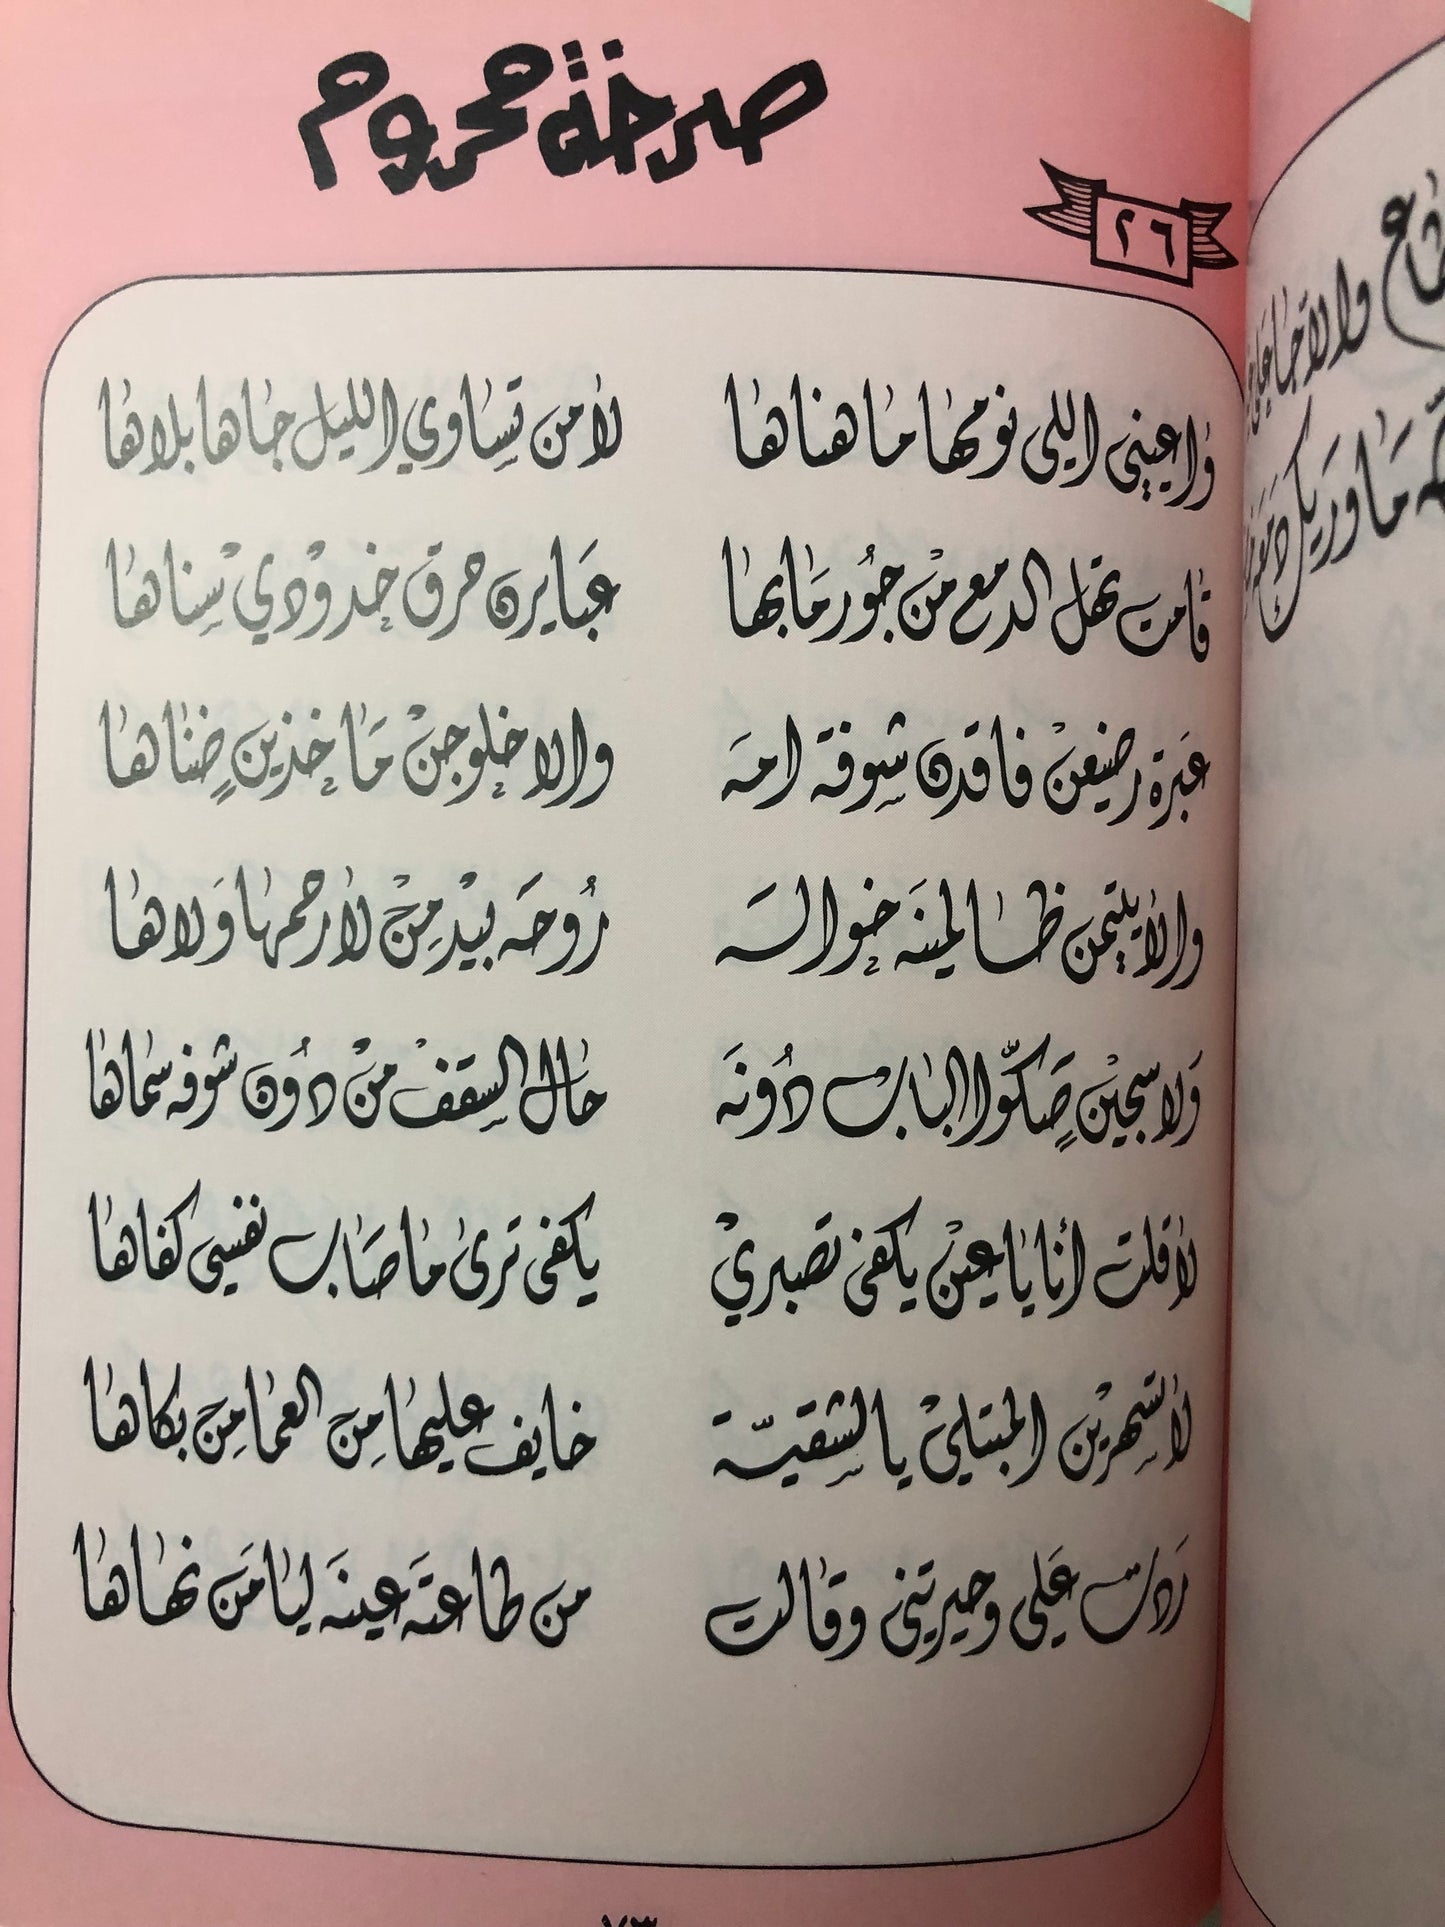 صرخة محروم
٢٦
وا عيني اللي نومها ما هناها لامن تساوي الليل جاها بلاها
قامت تهل الدمع من جور مابها عبايرن حرق خدودي سناها
عبرة رضيعن فاقدن شوفة امه والا خلوجن ما خذين ضناها
والا يتيمن ظالمينه خواله روحه بيد من لا رحمها ولاها
ولا سجين صكوا الباب دونه حال السقف من دون شوفه سماها
لا قلت أنا يا عين يكفي تصبري يكفي ترى ما صاب نفسي كفاها
لا تسهرين المبتلي يا الشقيّة خايف عليها من العما من بكاها
ردت علي وحيرتني وقالت من طاعته عينه ليا من نهاها
٧٣